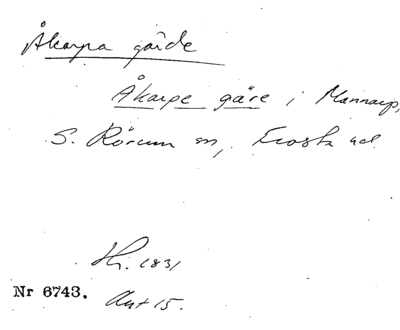 Åkarpa gärde
Åkarpe gäre i Mannarp,
S. Rörum sn, Frosta hd
Hs. 1831
Nr 6743. Avt 15.